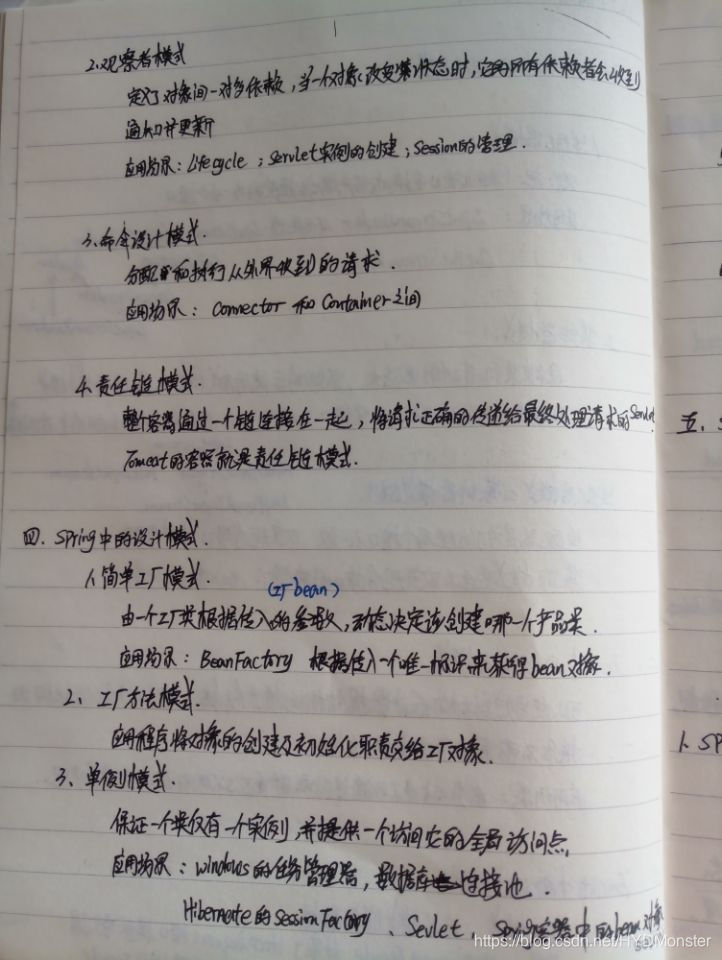 2.观察者模式
定义了对象间一对多依赖，当一个对象改变状态时，它的所有依赖者会收到
通知并更新
应用场景：Lifecycle；Servlet实例的创建；Session的管理.
3.命令设计模式.
分配和执行从外界收到的请求.
应用场景：Connector和Container之间
4.责任链模式.
整个容器通过一个链连接在一起，将请求正确的传递给最终处理请求的Servlet
Tomcat的容器就是责任链模式.
四. Spring中的设计模式.
1.简单工厂模式.
(工厂bean)
由一个工厂类根据传入的参数，动态决定该创建哪一个产品类.
应用场景：BeanFactory 根据传入一个唯一标识来获得bean对象.
2、工厂方法模式.
应用程序将对象的创建及初始化职责交给工厂对象.
3、单例模式.
保证一个类仅有一个实例，并提供一个访问它的全局访问点.
应用场景：windows的任务管理器，数据库连接池.
Hibernate的SessionFactory、Sevlet、Spring容器中的bean对象
五、
1. SP
https://blog.csdn.net/HYDMonster